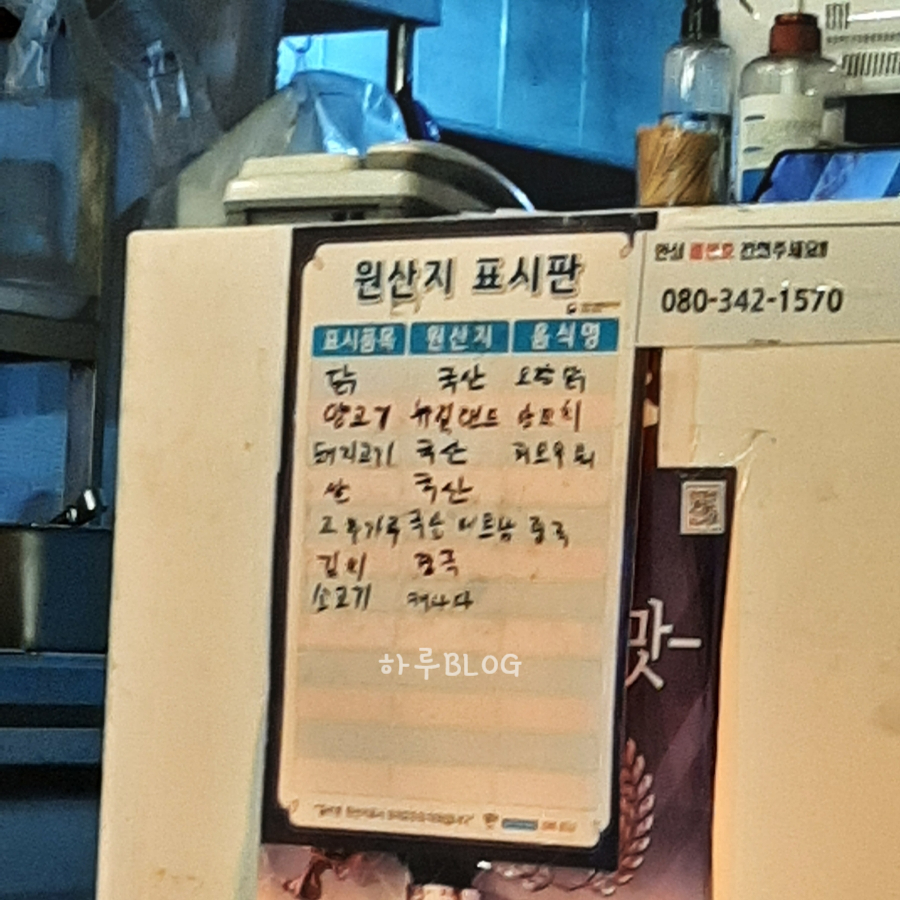 원산지 표시판
표시품목 원산지 음식명
닭 국산
양고기 뉴질랜드 양꼬치
돼지고기 국산
쌀 국산
고추가루 국산 베트남 중국
김치 중국
소고기 캐나다
하루BLOG
안심 콜번호 눌러주세요!!
080-342-1570
맛